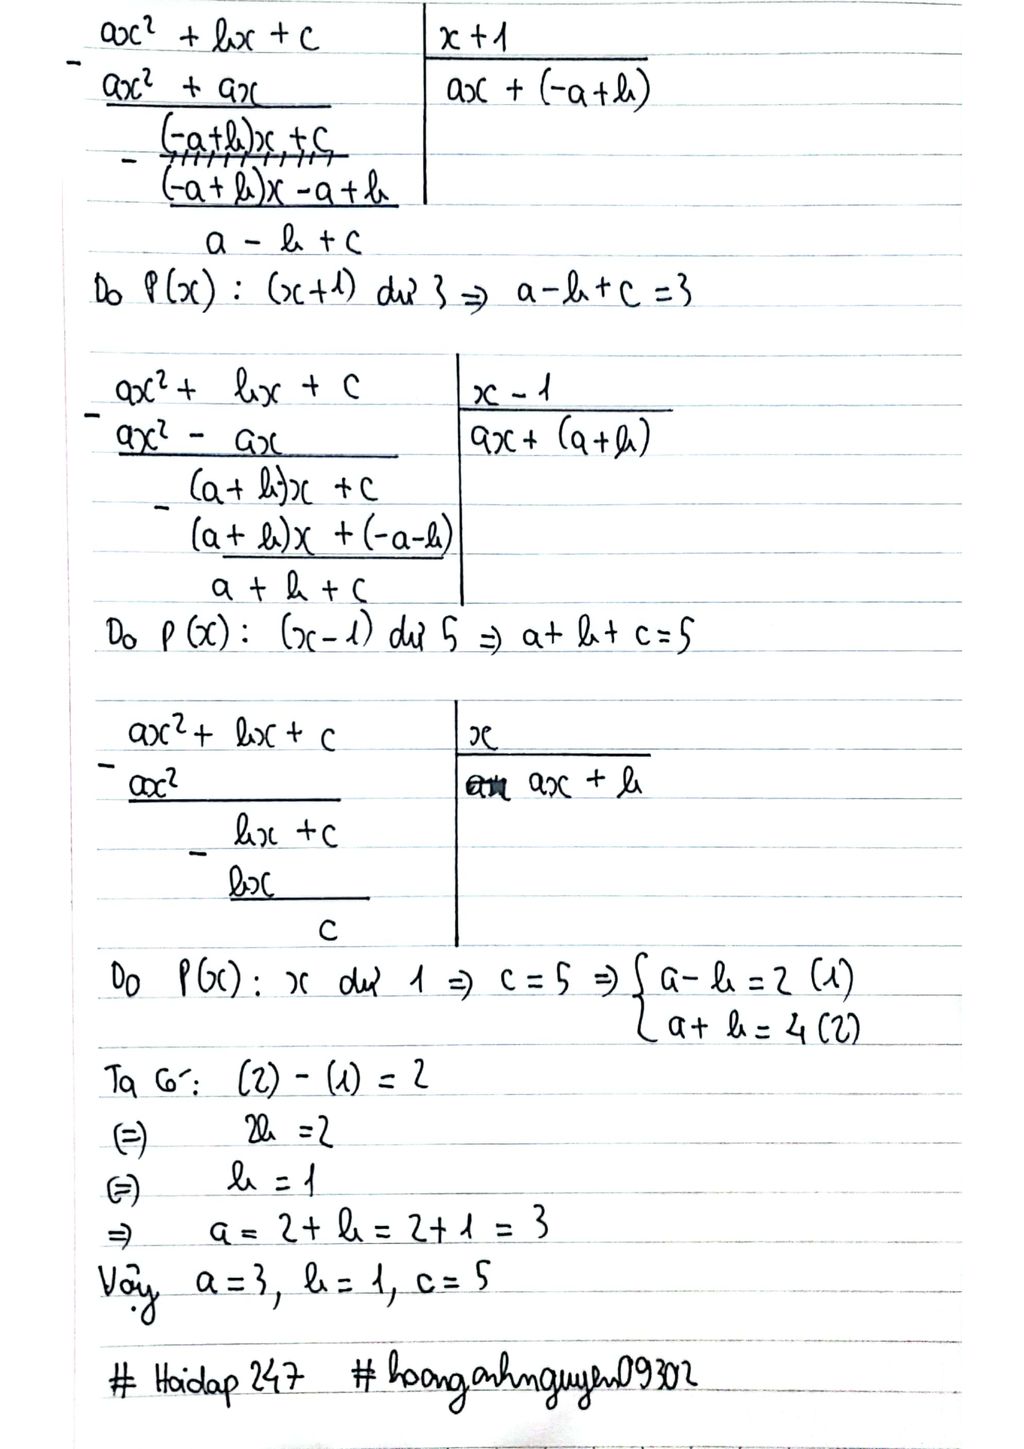 ax² + bx + c | x + 1
- ax² + ax | ax + (-a+b)
(-a+b)x + c
- (-a+b)x - a + b
a - b + c
Do P(x) : (x+1) dư 3 => a - b + c = 3
ax² + bx + c | x - 1
- ax² - ax | ax + (a+b)
(a+b)x + c
- (a+b)x + (-a-b)
a + b + c
Do P(x) : (x-1) dư 5 => a + b + c = 5
ax² + bx + c | x
- ax² | ax + b
bx + c
- bx
c
Do P(x) : x dư 1 => c = 5 => { a - b = 2 (1)
a + b = 4 (2)
Ta có: (2) - (1) = 2
(=) 2b = 2
(=) b = 1
=> a = 2 + b = 2 + 1 = 3
Vậy a = 3, b = 1, c = 5
# Hoidap 247 # hoanganhnguyen09302